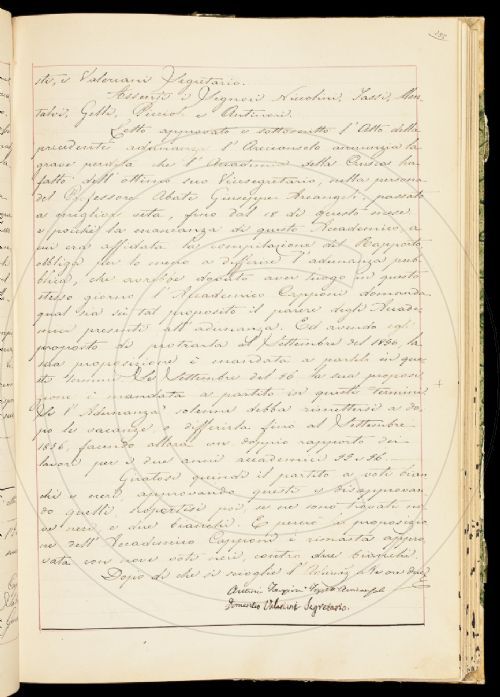 185
sti, e Valeriani Segretario.
Assenti i Signori Niccolini, Tassi, Mon-
talvi, Gelli, Puccioli e Antinori.
Letto approvato e sottoscritto l'Atto della
precedente adunanza l'Arciconsolo annunzia la
grave perdita che l'Accademia della Crusca ha
fatto dell'ottimo suo Vicesegretario, nella persona
del Professore Abate Giuseppe Arcangeli, passato
a miglior vita, fino dal 18 di questo mese
e poichè la mancanza di questo Accademico, a
cui era affidata la compilazione del Rapporto
obbliga per lo meno a differire l'adunanza pub-
blica, che avrebbe dovuto aver luogo in questo
stesso giorno l'Accademico Capponi domanda
qual sia su tal proposito il parere degli Accade-
mici presenti all'adunanza. Ed avendo egli
proposto di protrarla al Settembre del 1856, la
sua proposizione è mandata a partito in que-
sti termini Se Settembre del 56 la sua proposi-
zione è mandata a partito in questi termini
Se l'Adunanza solenne debba rimettersi a do-
po le vacanze, o differirla fino al Settembre
1856, facendo allora un doppio rapporto dei
lavori per i due anni accademici 55 e 56.
Giratosi quindi il partito a voti bian-
chi e neri, approvando questi e disapprovan-
do quelli, riportatisi poi se ne sono trovati no-
ve neri e due bianchi. E perciò la proposizio-
ne dell'Accademico Capponi è rimasta appro-
vata con nove voti neri contro due bianchi.
Dopo di che si scioglie l'Adunanza
Domenico Valeriani Segretario.